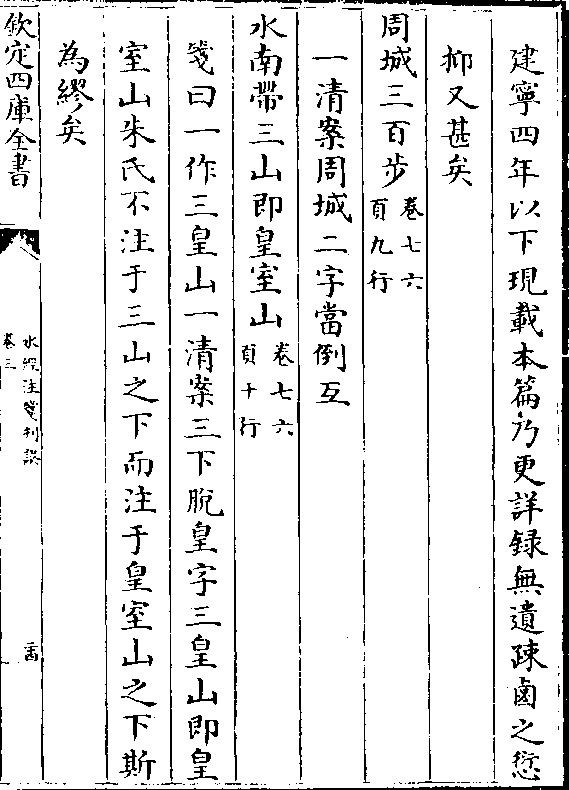 建寧四年以下現載本篇乃更詳録無遺疎鹵之愆
抑又甚矣
周城三百步卷七六頁九行
一清案周城二字當倒互
水南帶三山即皇室山卷七六頁十行
箋曰一作三皇山一清案三下脫皇字三皇山即皇
室山朱氏不注于三山之下而注于皇室山之下斯
為繆矣
欽定四庫全書
水經注箋刊誤
卷三